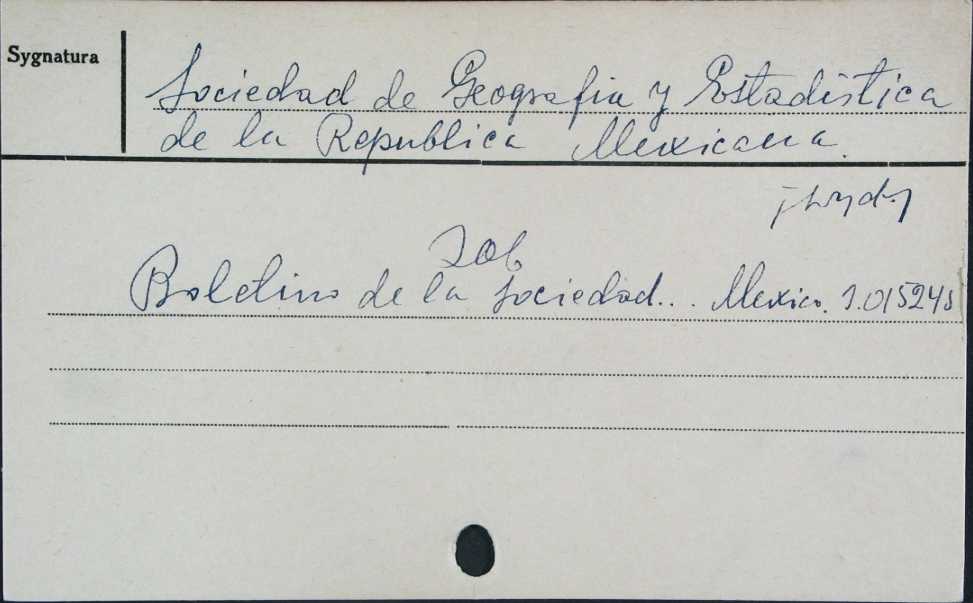 Sygnatura
Sociedad de Geografia y Estadística
de la Republica Mexicana.
Zob
Boletino de la Sociedad... Mexico. 1.015248